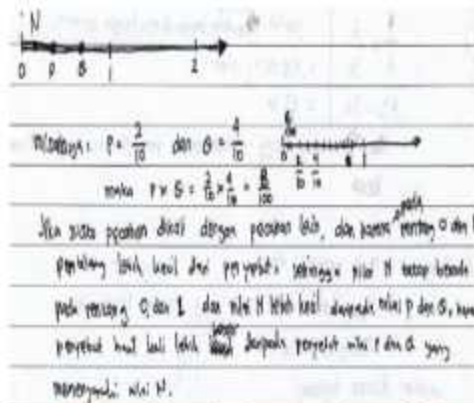 N
0 P Q 1 2
Misalnya: P = 2/10 dan Q = 4/10
0 8/100 2/10 4/10 1
maka P x Q = 2/10 x 4/10 = 8/100
Jika pecahan dikali dengan pecahan lain, dan karena pada rentang 0 dan 1
pembilang lebih kecil dari penyebut sehingga nilai N tetap berada
pada rentang 0 dan 1 dan nilai N lebih kecil daripada nilai P dan Q,
penyebut hasil kali lebih besar daripada penyebut nilai P dan Q yang
nilai N.